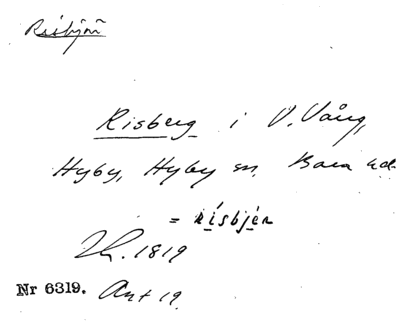 Risbjär
Risberg i V. Vång,
Hyby, Hyby sn. Bara hd.
= risbjer
Lh. 1819
Nr 6319. Ant 19.